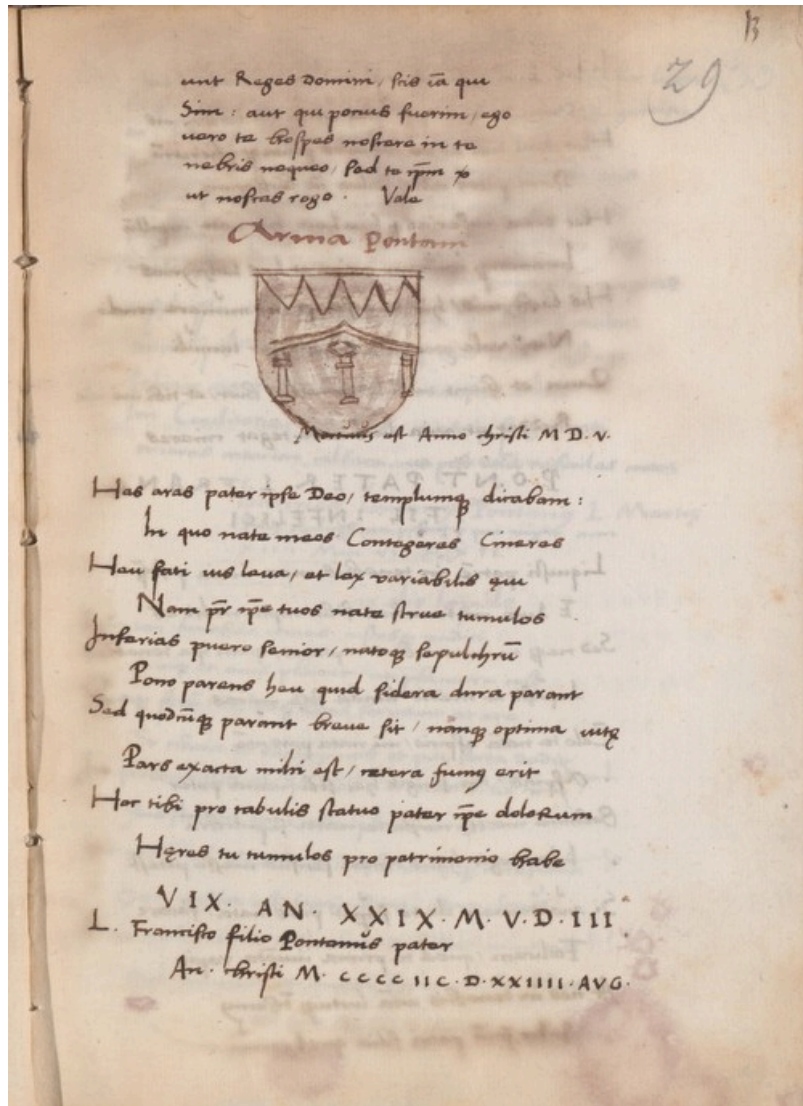 13
29
unt Reges Domini, scis iā qui
Sim: aut qui potius fuerim, ego
vero te hospes noscere in te
nebris nequeo, sed te ip̄m
ut noscas rogo. Vale
Arma Pontani
Mortuus est Anno christi M D. V.
Has aras pater ipse Deo, templumq̨ dicabam:
In quo nate meos Contegeres Cineres
Heu fati vis leva, et lex variabilis ęvi
Nam pr̄ ip̄e tuos nate strue tumulos
Inferias puero senior, natoq̨ sepulchrū
Pono parens heu quid sidera dura parant
Sed quodcūq̨ parant breve sit, nanq̨ optima vitę
Pars exacta mihi est, cetera fumus erit
Hoc tibi pro tabulis statuo pater ip̄e dolorum
Hęres tu tumulos pro patrimonio habe
VIX. AN. XXIX. M. V. D. III.
L. Francisco filio Pontanus pater
An. christi M. CCCC IIC. D. XXIIII. AVG.